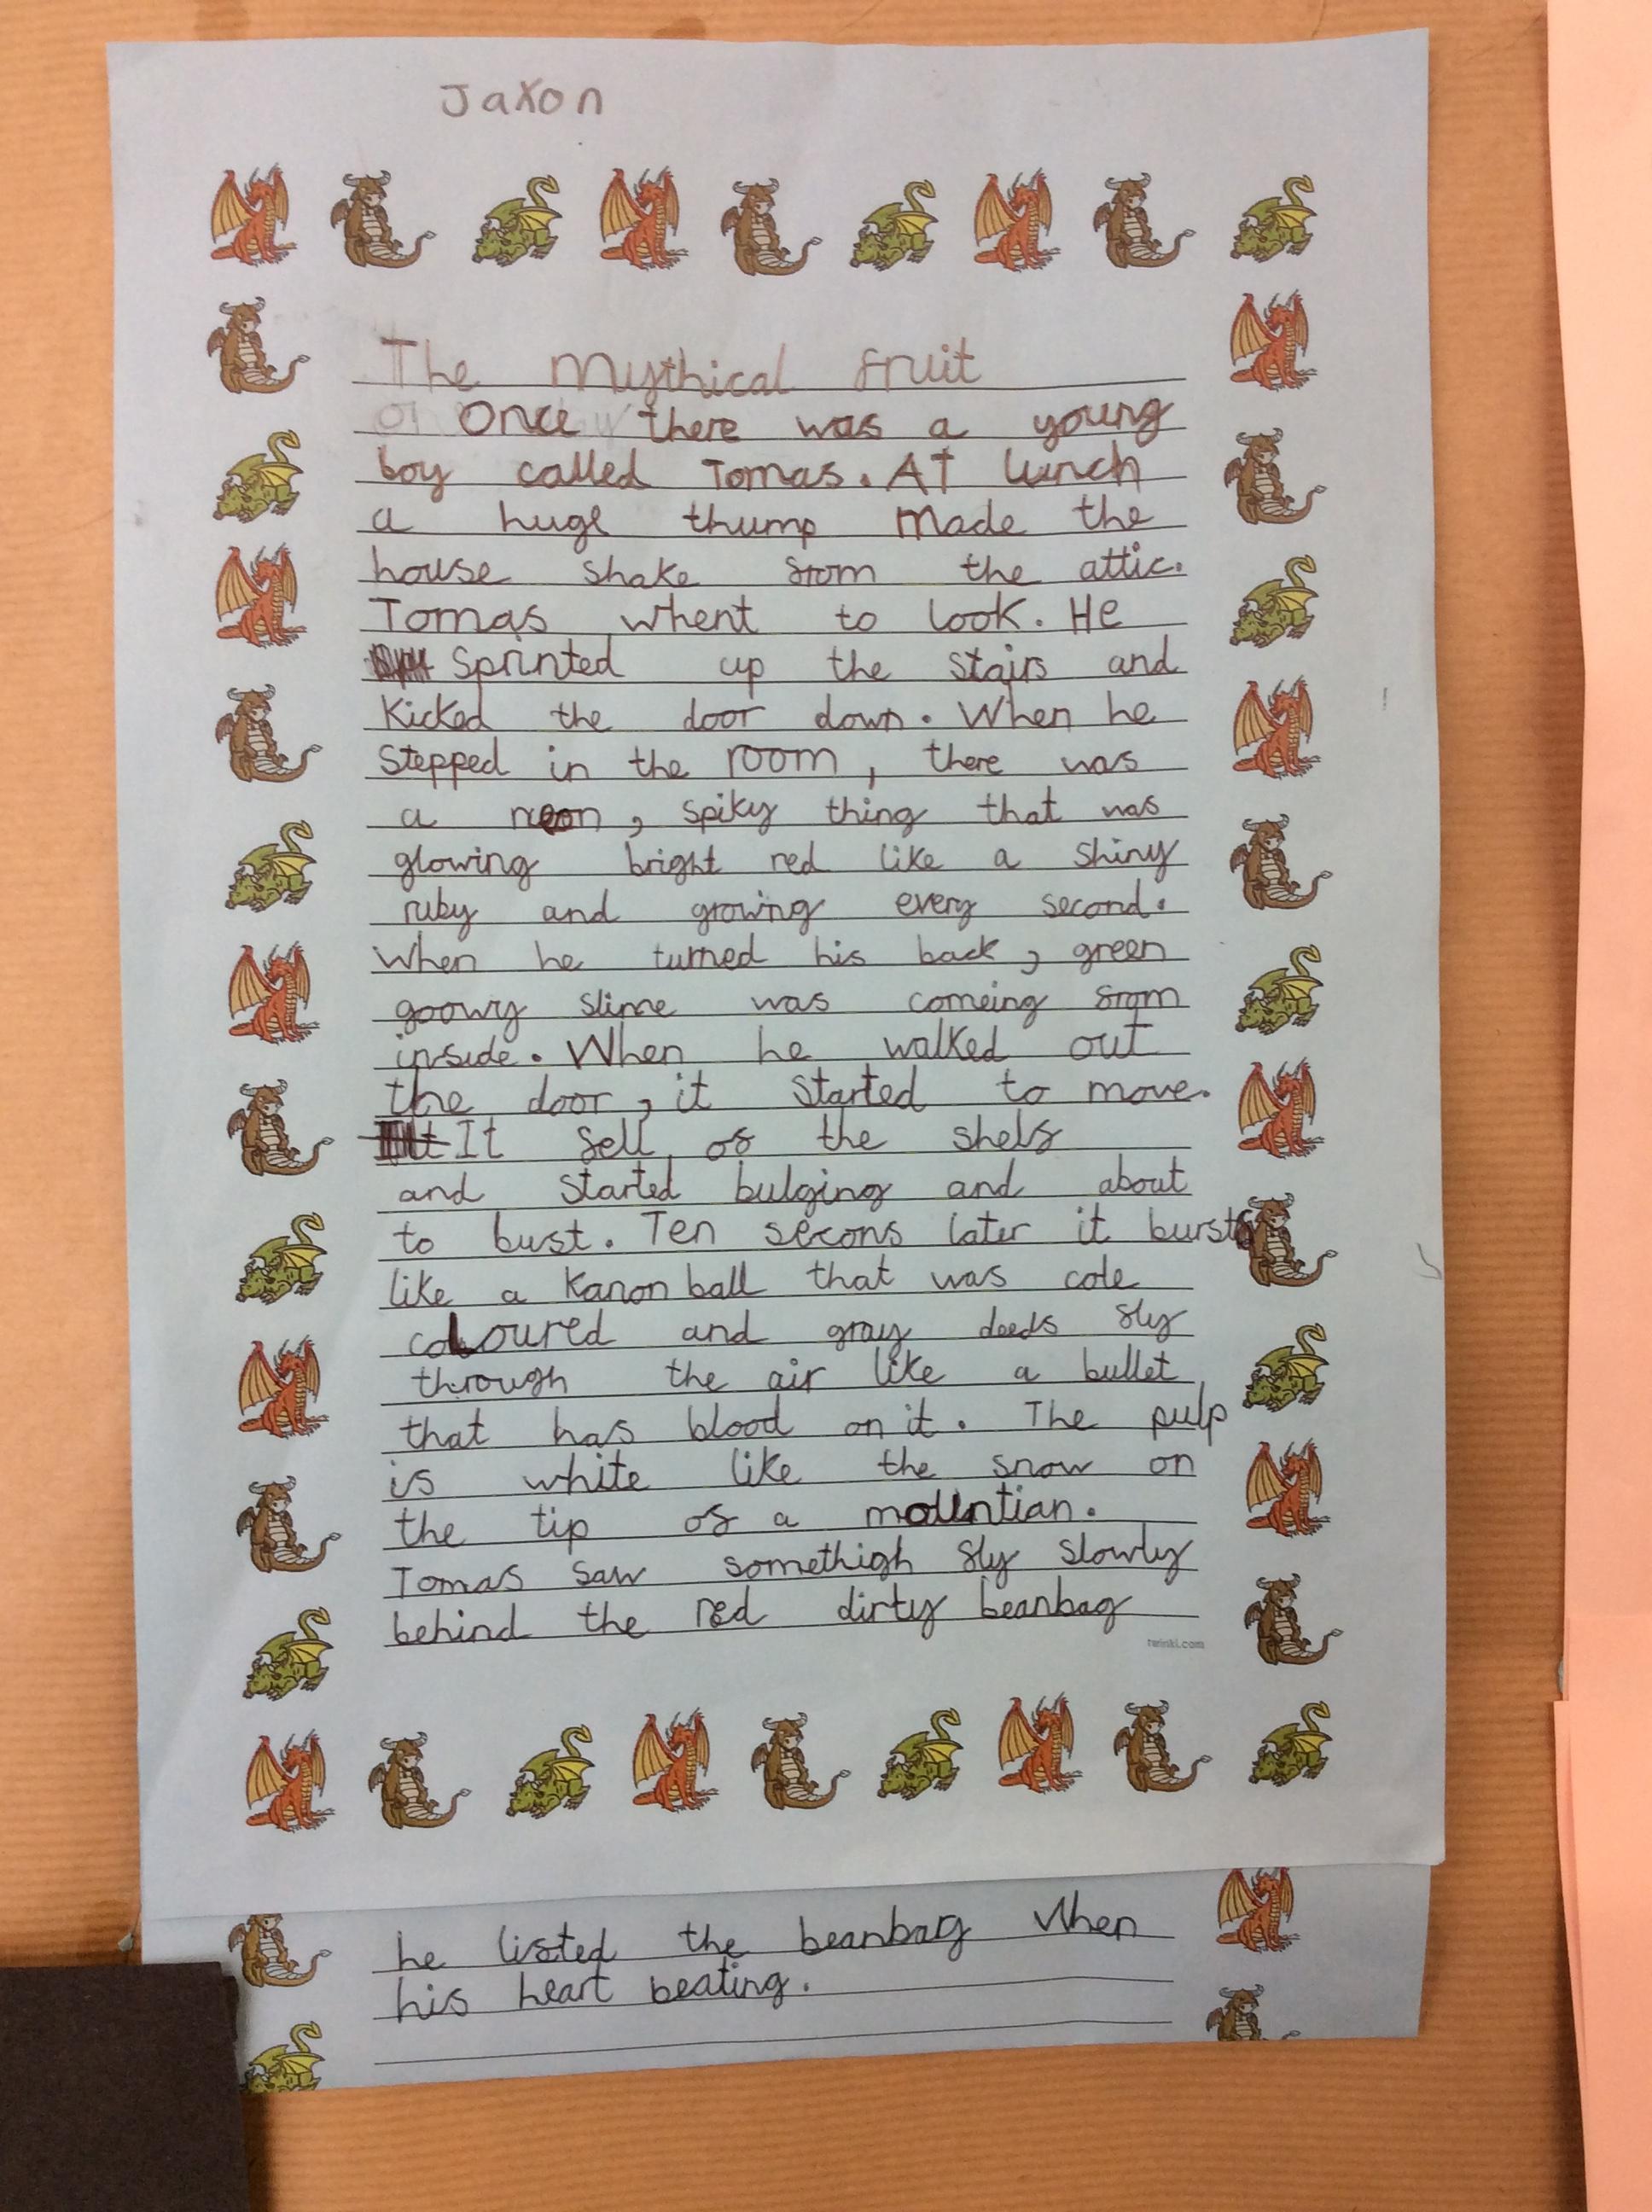 Jaxon
The Mythical fruit
Once there was a young
boy called Tomas. At lunch
a huge thump made the
house shake from the attic.
Tomas whent to look. He
sprinted up the stairs and
kicked the door down. When he
stepped in the room, there was
a neon, spiky thing that was
glowing bright red like a shiny
ruby and growing every second.
When he turned his back, green
goowy slime was comeing from
inside. When he walked out
the door, it started to move.
It fell of the shelf
and started bulging and about
to bust. Ten secons later it burst
like a kanon ball that was cole
coloured and gray deeds fly
through the air like a bullet
that has blood on it. The pulp
is white like the snow on
the tip of a mountian.
Tomas saw somethigh fly slowly
behind the red dirty beanbag
twinkl.com
he lifted the beanbag When
his heart beating.